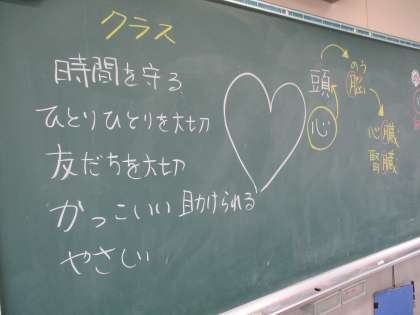 クラス
時間を守る
ひとりひとりを大切
友だちを大切
かっこいい 助けられる
やさしい
頭
心
のう
脳
心臓
腎臓